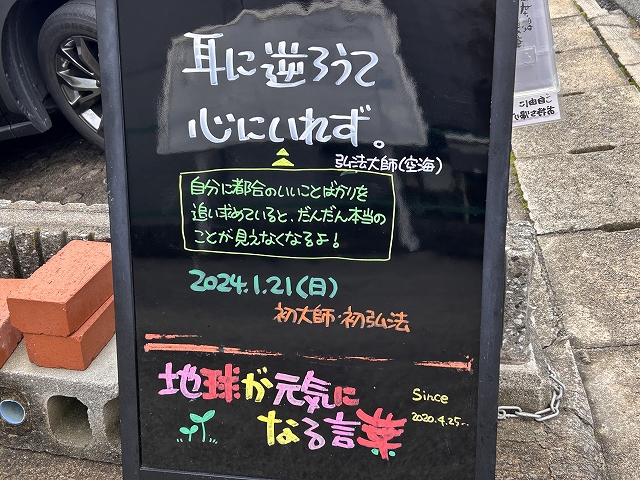 耳に逆ろうて
心にいれず。
弘法大師(空海)
自分に都合のいいことばかりを
追い求めていると、だんだん本当の
ことが見えなくなるよ!
2024.1.21(日)
初大師・初弘法
地球が元気に
なる言葉
Since
2020.4.25~
ご自由に
お持ち帰り